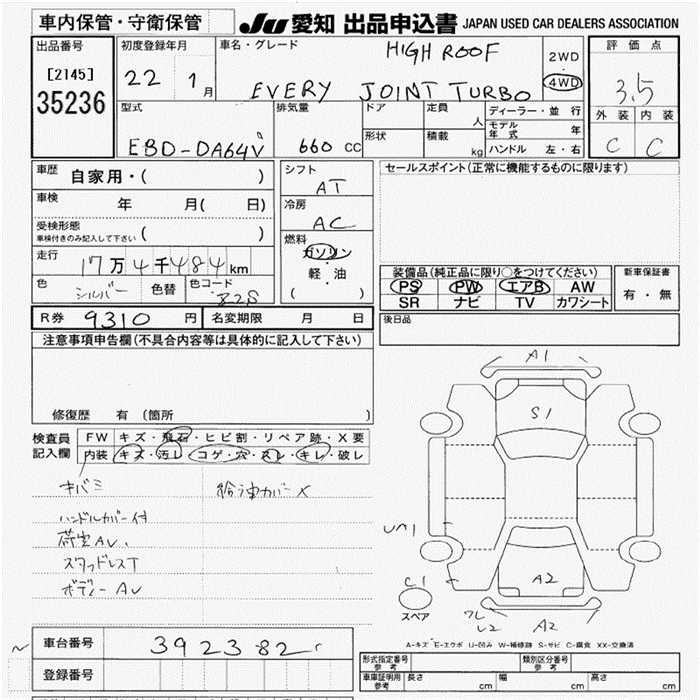 車内保管・守衛保管
JU 愛知 出品申込書 JAPAN USED CAR DEALERS ASSOCIATION
出品番号
[2145]
35236
初度登録年月
22 1月
車名・グレード
HIGH ROOF
EVERY JOINT TURBO
2WD
4WD
評価点
3.5
外装 内装
C C
型式
EBD-DA64V
排気量
660 CC
ドア
定員 人
形状
積載 kg
ディーラー・並行
モデル年式 年
ハンドル 左・右
車歴 自家用・( )
車検 年 月( 日)
受検形態
車検付きのみ記入して下さい ( )
走行 17万4千484km
色 シルバー 色替 色コード Z2S
シフト
AT
冷房
AC
燃料
ガソリン
軽・油
( )
セールスポイント(正常に機能するものに限ります)
装備品(純正品に限り○をつけてください)
PS PW エアB AW
SR ナビ TV カワシート
新車保証書
有・無
R券 9310 円 名変期限 月 日
後日品
注意事項申告欄(不具合内容等は具体的に記入して下さい)
修復歴 有 (箇所 )
検査員記入欄
FW キズ・飛石・ヒビ割・リペア跡・X要
内装 キズ・汚レ・コゲ・穴・スレ・キレ・破レ
キバミ
給油カバーX
ハンドルカバー付
荷室AV.
スタッドレスT
ボディーAV
A1
S1
UA1
A2
C1
スペア
ワレ
L2
A2
A-キズ E-エクボ U-凹み W-補修跡 S-サビ C-腐食 XX-交換済
車台番号 392382
登録番号
形式指定番号 参考
類別区分番号 参考
車庫証明用 参考 長さ cm 幅 cm 高さ cm